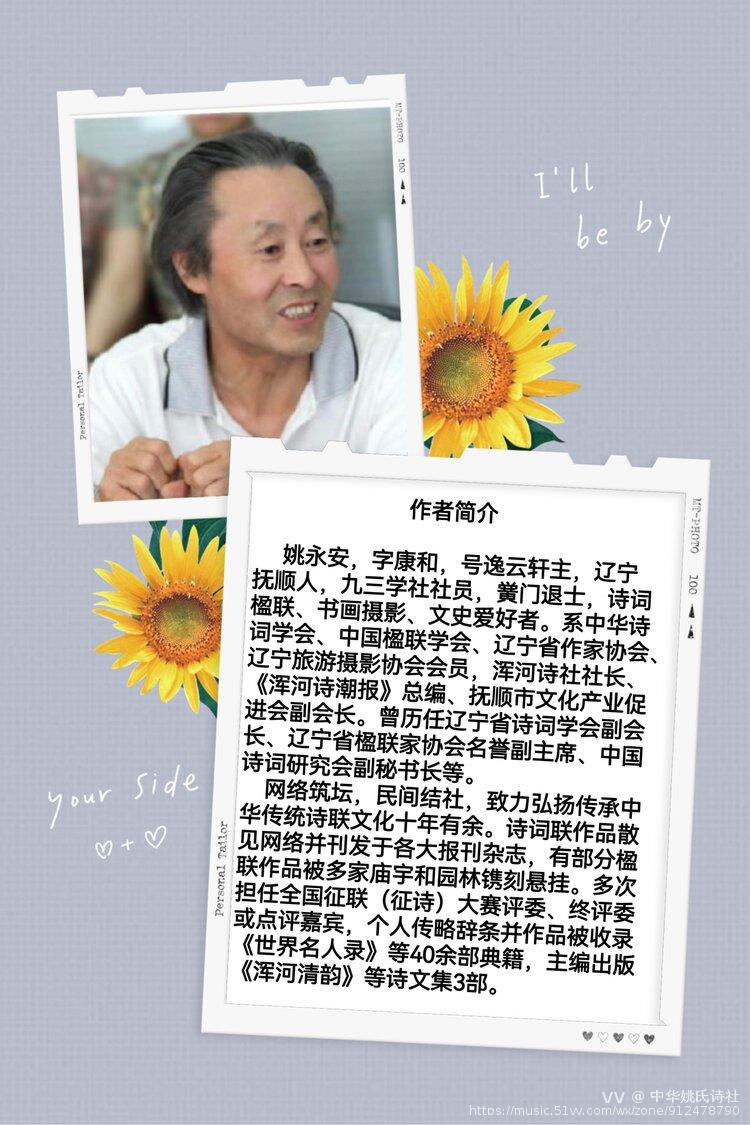 MT-PHOTO 100
I'll
be by
Personal Tailor
作者简介
姚永安，字康和，号逸云轩主，辽宁
抚顺人，九三学社社员，黉门退士，诗词
楹联、书画摄影、文史爱好者。系中华诗
词学会、中国楹联学会、辽宁省作家协会、
辽宁旅游摄影协会会员，浑河诗社社长、
《浑河诗潮报》总编、抚顺市文化产业促
进会副会长。曾历任辽宁省诗词学会副会
长、辽宁省楹联家协会名誉副主席、中国
诗词研究会副秘书长等。
网络筑坛，民间结社，致力弘扬传承中
华传统诗联文化十年有余。诗词联作品散
见网络并刊发于各大报刊杂志，有部分楹
联作品被多家庙宇和园林镌刻悬挂。多次
担任全国征联（征诗）大赛评委、终评委
或点评嘉宾，个人传略辞条并作品被收录
《世界名人录》等40余部典籍，主编出版
《浑河清韵》等诗文集3部。
MT-PHOTO 100
your side
Personal Tailor
VV @ 中华姚氏诗社
https://music.51vv.com/wx/zone/912478790